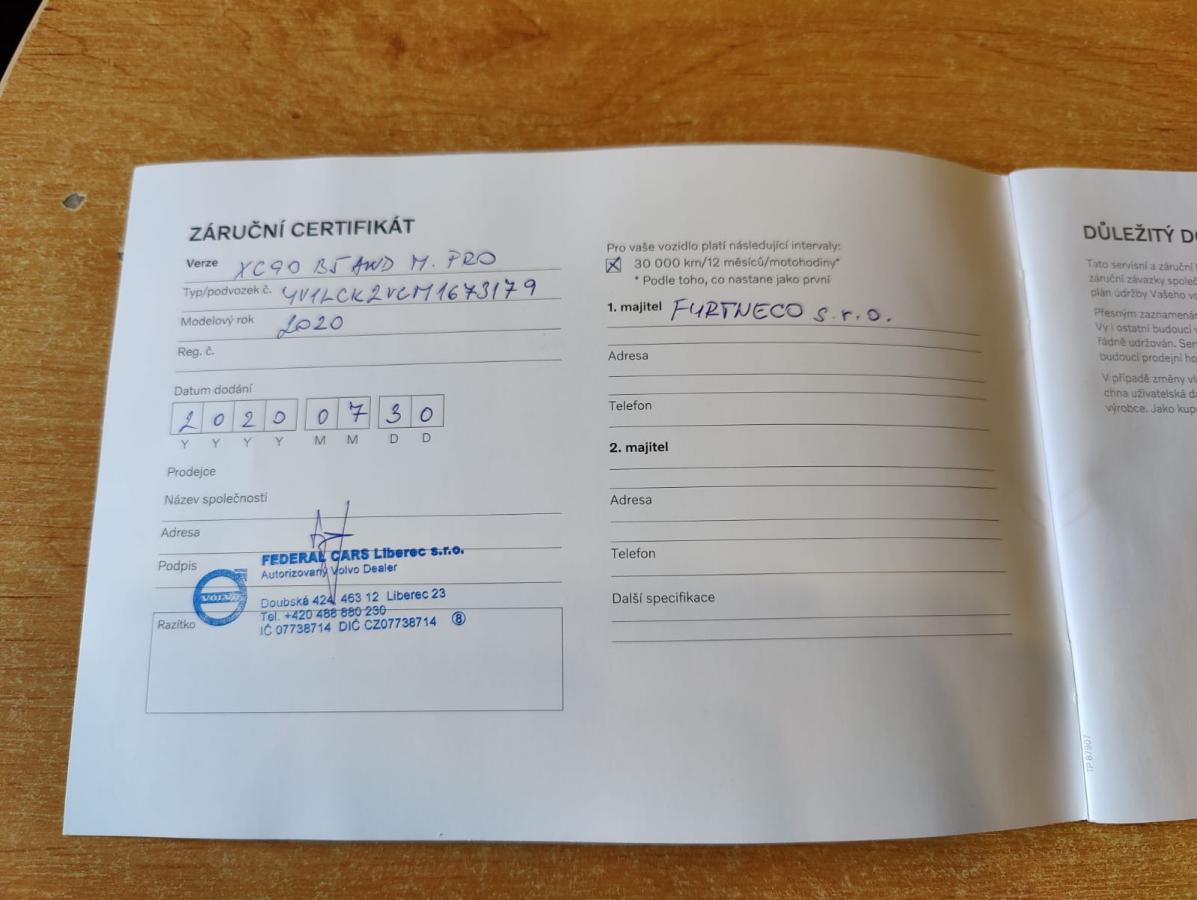 ZÁRUČNÍ CERTIFIKÁT
Verze XC90 B5 AWD M. PRO
Typ/podvozek č. YV1LCK2VCM1673179
Modelový rok 2020
Reg. č.
Datum dodání
2 0 2 0 0 7 3 0
Y Y Y Y M M D D
Prodejce
Název společnosti
Adresa
Podpis
Razítko
VOLVO
FEDERAL CARS Liberec s.r.o.
Autorizovaný Volvo Dealer
Doubská 424, 463 12 Liberec 23
Tel. +420 488 880 230
IČ 07738714 DIČ CZ07738714 8
Pro vaše vozidlo platí následující intervaly:
30 000 km/12 měsíců/motohodiny*
* Podle toho, co nastane jako první
1. majitel FURTNECO s.r.o.
Adresa
Telefon
2. majitel
Adresa
Telefon
Další specifikace
TP 87907
DŮLEŽITÝ
Tato servisní a záruční
záruční závazky
plán údržby Vašeho
Přesným
Vy i ostatní budoucí
řádně udržován.
budoucí prodejní
V případě změny
uživatelská
výrobce. Jako